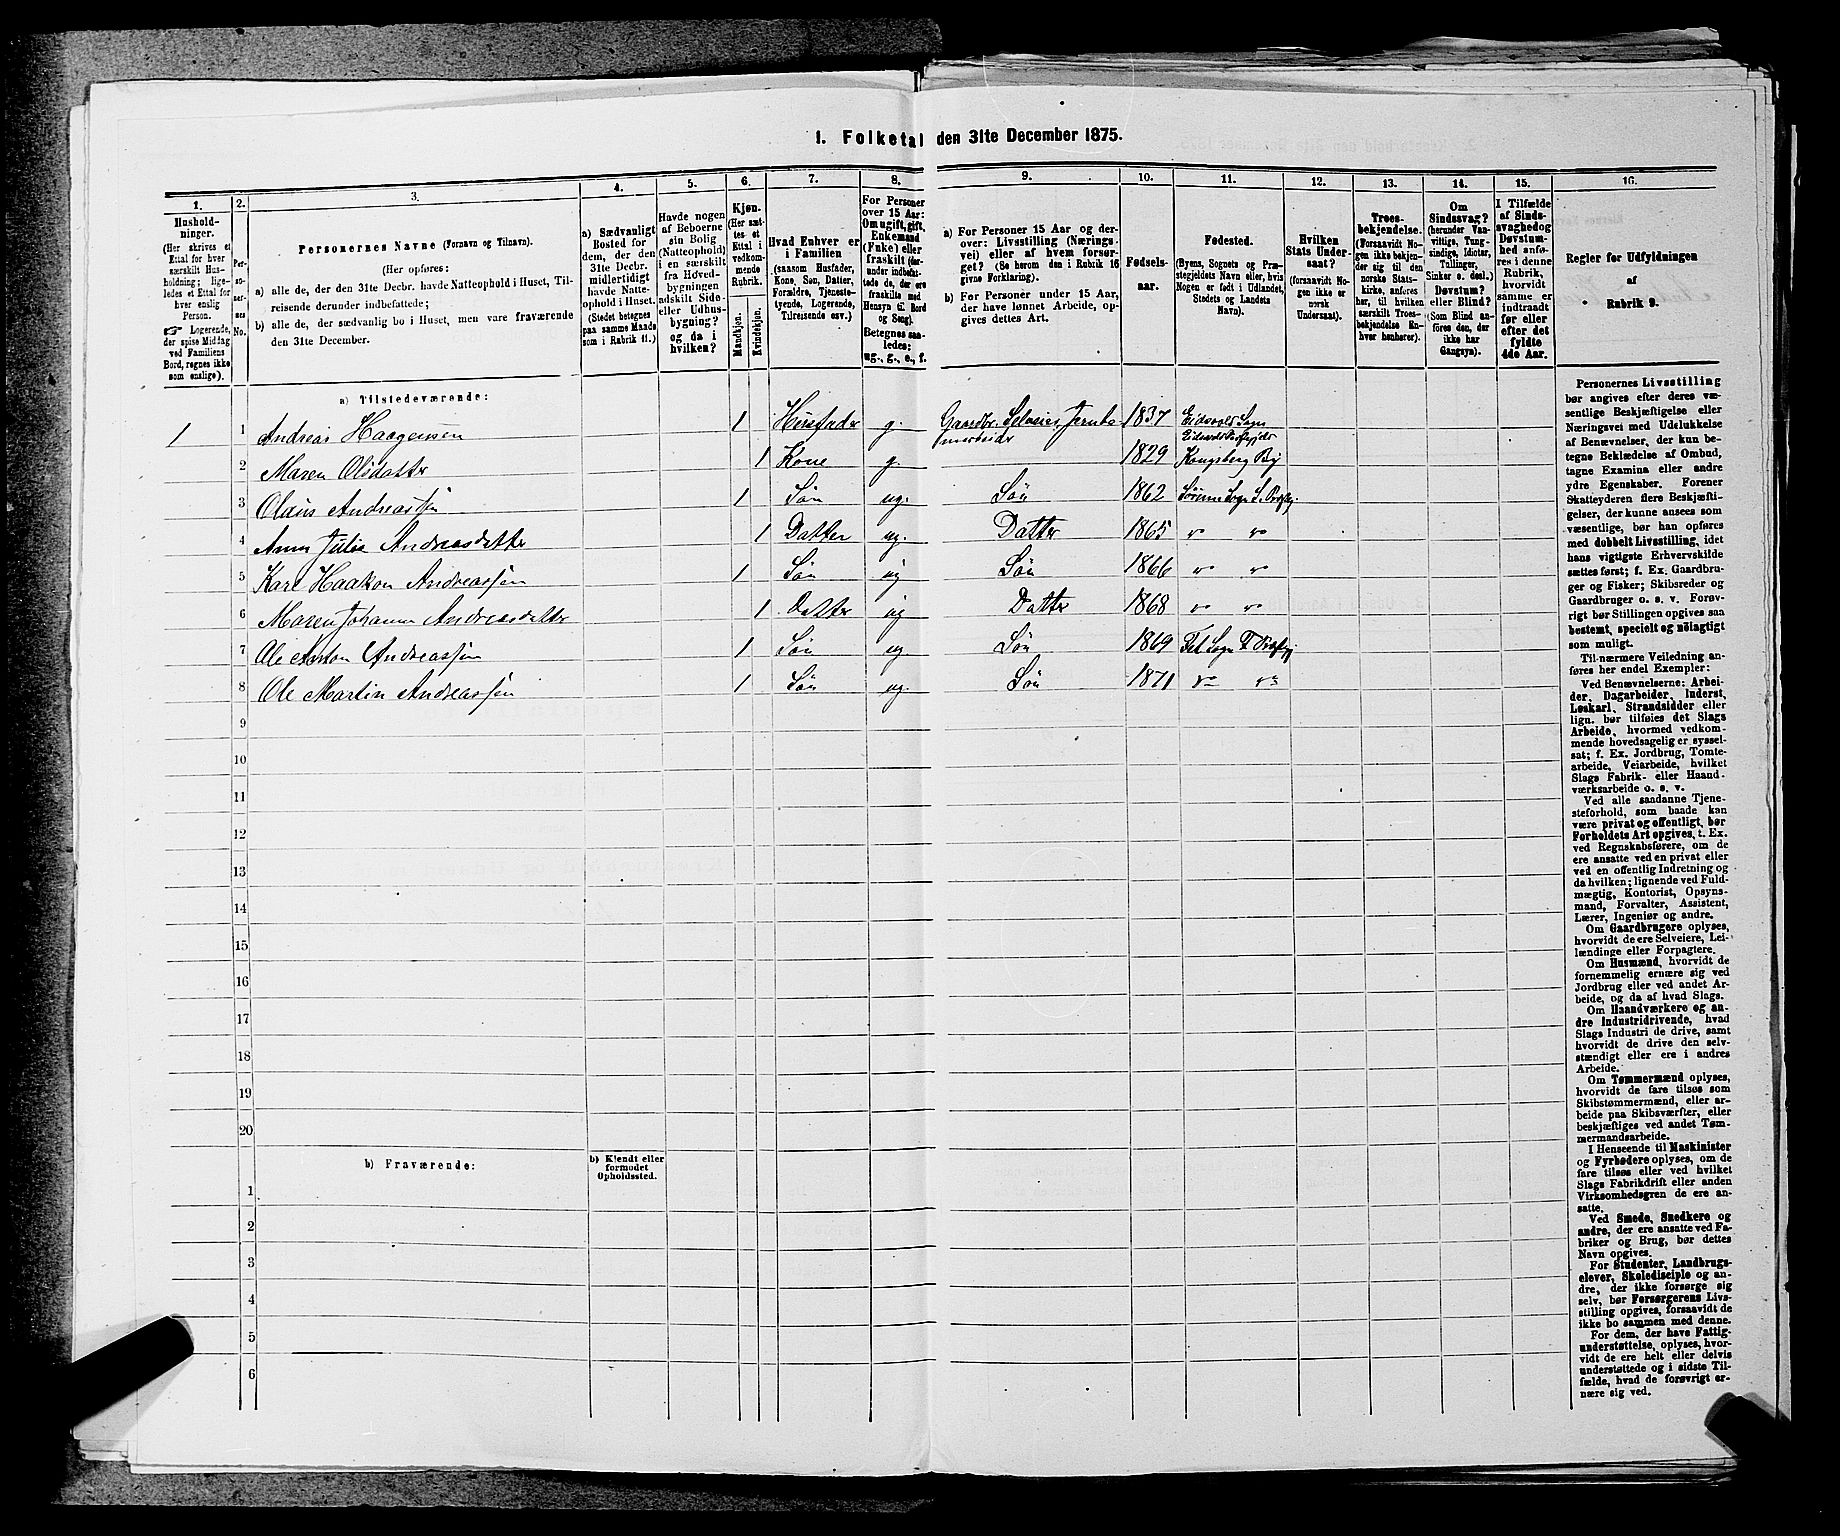 1. Folketal den 31te December 1875.
1. 2. 3. 4. 5. 6. 7. 8. 9. 10. 11. 12. 13. 14. 15. 16.
Hushold-
ninger.
(Her skrives et
Ettal for hver
særskilt Hus-
holdning; lige-
ledes et Ettal for
hver enslig
Person.
☞ Logerende,
der spise Middag
ved Familiens
Bord, regnes ikke
som enslige).
Per-
so-
ner-
nes
No.
Personernes Navne (Fornavn og Tilnavn).
(Her opføres:
a) alle de, der den 31te Decbr. havde Natteophold i Huset, Til-
reisende derunder indbefattede;
b) alle de, der sædvanlig bo i Huset, men vare fraværende
den 31te December.
a) Sædvanligt
Bosted for
dem, der den
31te Decbr.
midlertidigt
havde Natte-
ophold i Huset.
(Stedet betegnes
paa samme Maade
som i Rubrik 11.)
Havde nogen
af Beboerne
sin Bolig
(Natteophold)
i en særskilt
fra Hoved-
bygningen
adskilt Side-
eller Udhus-
bygning?
og da i
hvilken?
Kjøn.
(Her sæt-
tes et
Ettal i
vedkom-
mende
Rubrik.
Mandkjøn.
Kvindekjøn.
Hvad Enhver er
i Familien
(saasom Husfader,
Kone, Søn, Datter,
Forældre, Tjeneste-
tyende, Logerende,
Tilreisende osv.)
For Personer
over 15 Aar:
Om ugift, gift,
Enkemand
(Enke) eller
fraskilt (der-
under indbefat-
tede de, der ere
fraskilte med
Hensyn til Bord
og Seng).
Betegnes saa-
ledes:
ug., g., e., f.
a) For Personer 15 Aar og der-
over: Livsstilling (Nærings-
vei) eller af hvem forsør-
get? (Se herom den i Rubrik 16
givne Forklaring).
b) For Personer under 15 Aar,
der have lønnet Arbeide, op-
gives dettes Art.
Fødsels-
aar.
Fødested.
(Byens, Sognets og Præ-
stegjeldets Navn eller, hvis
Nogen er født i Udlandet,
Stedets og Landets
Navn).
Hvilken
Stats Under-
saat?
(forsaavidt No-
gen ikke er
norsk
Undersaat).
Troes-
bekjendelse.
(Forsaavidt No-
gen ikke bekjen-
der sig til den
norske Stats-
kirke, anføres
her, til hvilken
særskilt Troes-
bekjendelse En-
hver henhører).
Om
Sindssvag?
(herunder Van-
vittige, Tung-
sindige, Idioter,
Tullinger,
Sinker o. desl.)
Døvstum?
eller Blind?
(Som Blind an-
føres den, der
ikke har
Gangsyn).
I Tilfælde
af Sinds-
svaghed og
Døvstum-
hed anfø-
res i denne
Rubrik,
hvorvidt
samme er
indtraadt
før eller
efter det
fyldte
4de Aar.
Regler for Udfyldningen
af
Rubrik 9.
a) Tilstedeværende:
1 1 Andreas Haagensen 1 Husfader g. Gaardbr. Selveier, Jernba 1837 Eidsvolds Sogn
nearbeider Eidsvolds Præstgjeld
2 Maren Olsdatter 1 Kone g. 1829 Kongsberg By
3 Olaus Andreassen 1 Søn ug. Søn 1862 Sørum Sogn S. Prstgj.
4 Anne Julie Andreasdatter 1 Datter ug. Datter 1865 " "
5 Karl Haakon Andreassen 1 Søn ug Søn 1866 " "
6 Maren Johanne Andreasdatter 1 Datter ug Datter 1868 " "
7 Ole Anton Andreassen 1 Søn ug. Søn 1869 Fet Sogn F. Prstgj
8 Ole Martin Andreassen 1 Søn ug. Søn 1871 " "
9
10
11
12
13
14
15
16
17
18
19
20
b) Fraværende:
b) Kjendt eller
formodet
Opholdssted.
1
2
3
4
5
6
Personernes Livsstilling
bør angives efter deres væ-
sentlige Beskjæftigelse eller
Næringsvei med Udelukkelse
af Benævnelser, der kun be-
tegne Beklædelse af Ombud,
tagne Examina eller andre
ydre Egenskaber. Forener
Skatteyderen flere Beskjæfti-
gelser, der kunne ansees som
væsentlige, bør han opføres
med dobbelt Livsstilling, idet
hans vigtigste Erhvervskilde
sættes først; f. Ex. Gaardbru-
ger og Fisker; Skibsreder og
Gaardbruger o. s. v. Forøv-
rigt bør Stillingen opgives saa
bestemt, specielt og nøiagtigt
som muligt.
Til nærmere Veiledning an-
føres her endel Exempler:
Ved Benævnelserne: Arbei-
der, Dagarbeider, Inderst,
Løskarl, Strandsidder eller
lign. bør tilføies det Slags
Arbeide, hvormed vedkom-
mende hovedsagelig er syssel-
sat; f. Ex. Jordbrug, Tomte-
arbeide, Veiarbeide, hvilket
Slags Fabrik- eller Haand-
værksarbeide o. s. v.
Ved alle saadanne Tjene-
steforhold, som baade kan
være privat og offentligt, bør
Forholdets Art opgives, t. Ex.
ved Regnskabsførere, om de
ere ansatte ved en privat eller
ved en offentlig Indretning og
da hvilken; lignende ved Fuld-
mægtig, Kontorist, Opsyns-
mand, Forvalter, Assistent,
Lærer, Ingeniør og andre.
Om Gaardbrugere oplyses,
hvorvidt de ere Selveiere, Lei-
lændinge eller Forpagtere.
Om Husmænd, hvorvidt de
fornemmelig ernære sig ved
Jordbrug eller ved andet Ar-
beide, og da af hvad Slags.
Om Haandværkere og an-
dre industridrivende, hvad
Slags Industri de drive, samt
hvorvidt de drive den selv-
stændigt eller ere i andres
Arbeide.
Om Tømmermænd oplyses,
hvorvidt de fare tilsøs som
Skibstømmermænd, eller ar-
beide paa Skibsværfter, eller
beskjæftiges ved andet Tøm-
mermandsarbeide.
I Henseende til Maskinister
og Fyrbødere oplyses, om de
fare tilsøs eller ved hvilket
Slags Fabrikdrift eller anden
Virksomhedsgren de ere an-
satte.
Ved Smede, Snedkere og
andre, der ere ansatte ved Fa-
briker og Brug, bør dettes
Navn opgives.
For Studenter, Landbrugs-
elever, Skoledisciple og an-
dre, der ikke forsørge sig
selv, bør Forsørgerens Livs-
stilling opgives, forsaavidt de
ikke bo sammen med denne.
For dem, der have Fattig-
understøttelse, oplyses, hvor-
vidt de ere helt eller delvis
understøttede og i sidste Til-
fælde, hvad de forøvrigt er-
nære sig ved.